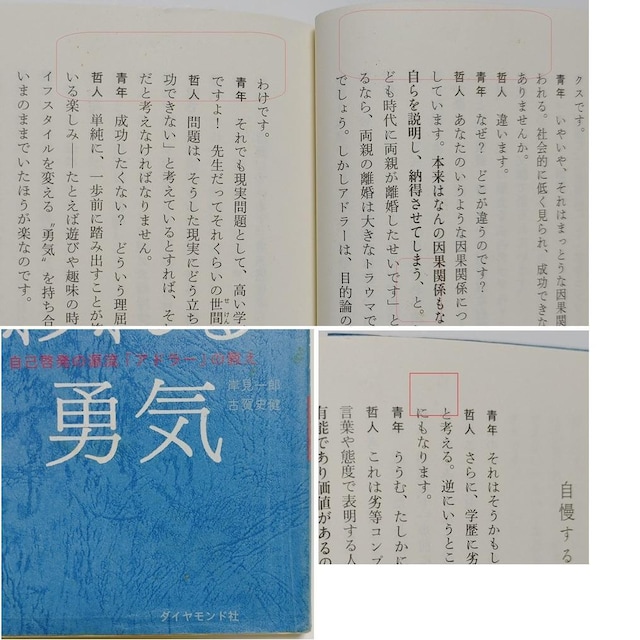 クスです。
青年　いやいや、それはまっとうな因果関
われる。社会的に低く見られ、成功できな
ありませんか。
哲人　違います。
青年　なぜ？　どこが違うのです？
哲人　あなたのいうような因果関係につ
しています。本来はなんの因果関係もな
自らを説明し、納得させてしまう、と。
ども時代に両親が離婚したせいです」と
るなら、両親の離婚は大きなトラウマで
でしょう。しかしアドラーは、目的論の
わけです。
青年　それでも現実問題として、高い学
ですよ！　先生だってそれくらいの世間
せけん
哲人　問題は、そうした現実にどう立ち
功できない」と考えているとすれば、そ
だと考えなければなりません。
青年　成功したくない？　どういう理屈
哲人　単純に、一歩前に踏み出すことが
いる楽しみ――たとえば遊びや趣味の時
イフスタイルを変える〝勇気〟を持ち合
いまのままでいたほうが楽なのです。
自己啓発の源流「アドラー」の教え
岸見一郎
古賀史健
勇気
ダイヤモンド社
自慢する
青年　それはそうかもし
哲人　さらに、学歴に劣
と考える。逆にいうとこ
にもなります。
青年　ううむ、たしかに
哲人　これは劣等コンプ
言葉や態度で表明する人
有能であり価値があるの